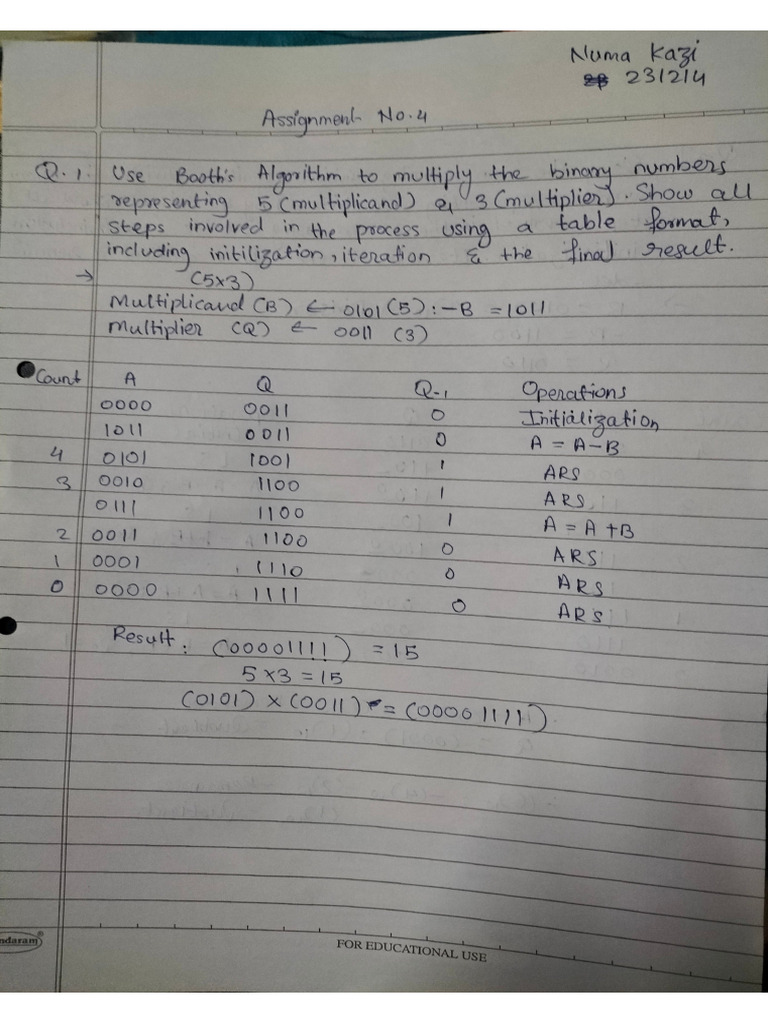 Numa Kazi
231214
Assignment No.4
Q.1. Use Booth's Algorithm to multiply the binary numbers
representing 5 (multiplicand) & 3 (multiplier). Show all
steps involved in the process using a table format,
including initilization, iteration & the final result.
→ (5x3)
Multiplicand (B) ← 0101 (5) : -B = 1011
Multiplier (Q) ← 0011 (3)
Count A Q Q-1 Operations
0000 0011 0 Initialization
1011 0011 0 A = A-B
4 0101 1001 1 ARS
3 0010 1100 1 ARS
0111 1100 1 A = A+B
2 0011 1100 0 ARS
1 0001 1110 0 ARS
0 0000 1111 0 ARS
Result : (00001111) = 15
5 x 3 = 15
(0101) x (0011) = (00001111)
ndaram®
FOR EDUCATIONAL USE